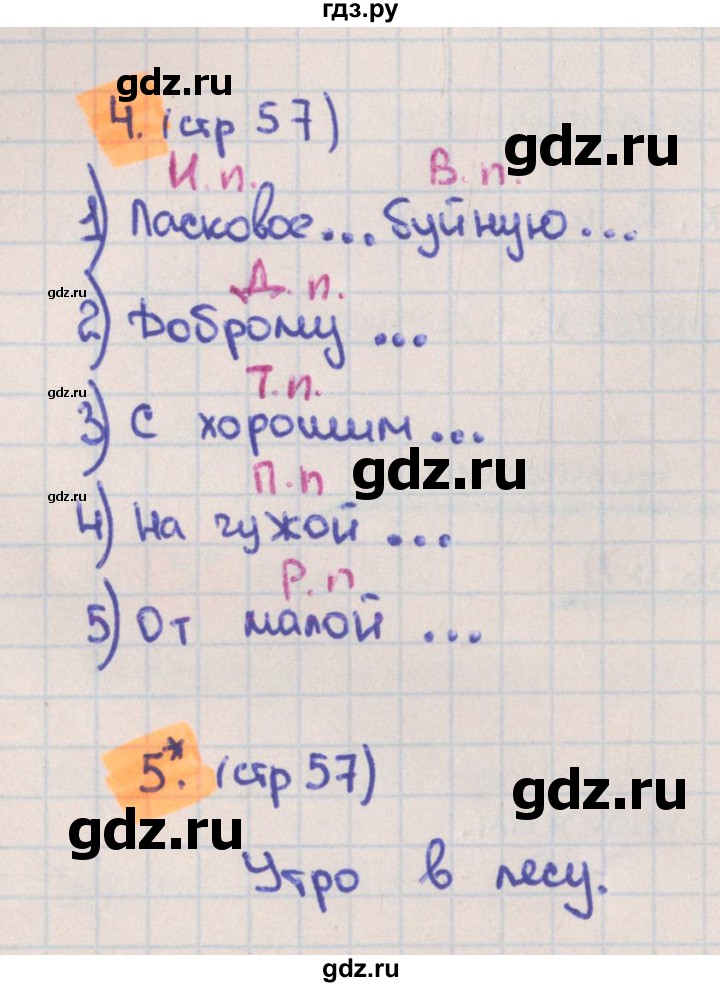 гдз.ру
gdz.ru
4. (стр 57)
gdz.ru
И. п. В. п.
1) Ласковое... буйную...
gdz.ru
Д. п.
2) Доброму ...
Т. п.
gdz.ru
3) С хорошим ...
gdz.ru
П. п
gdz.ru
4) На чужой ...
Р. п
5) От малой ...
5*. (стр 57)
gdz.ru
gdz.ru
Утро в лесу.
gdz.ru